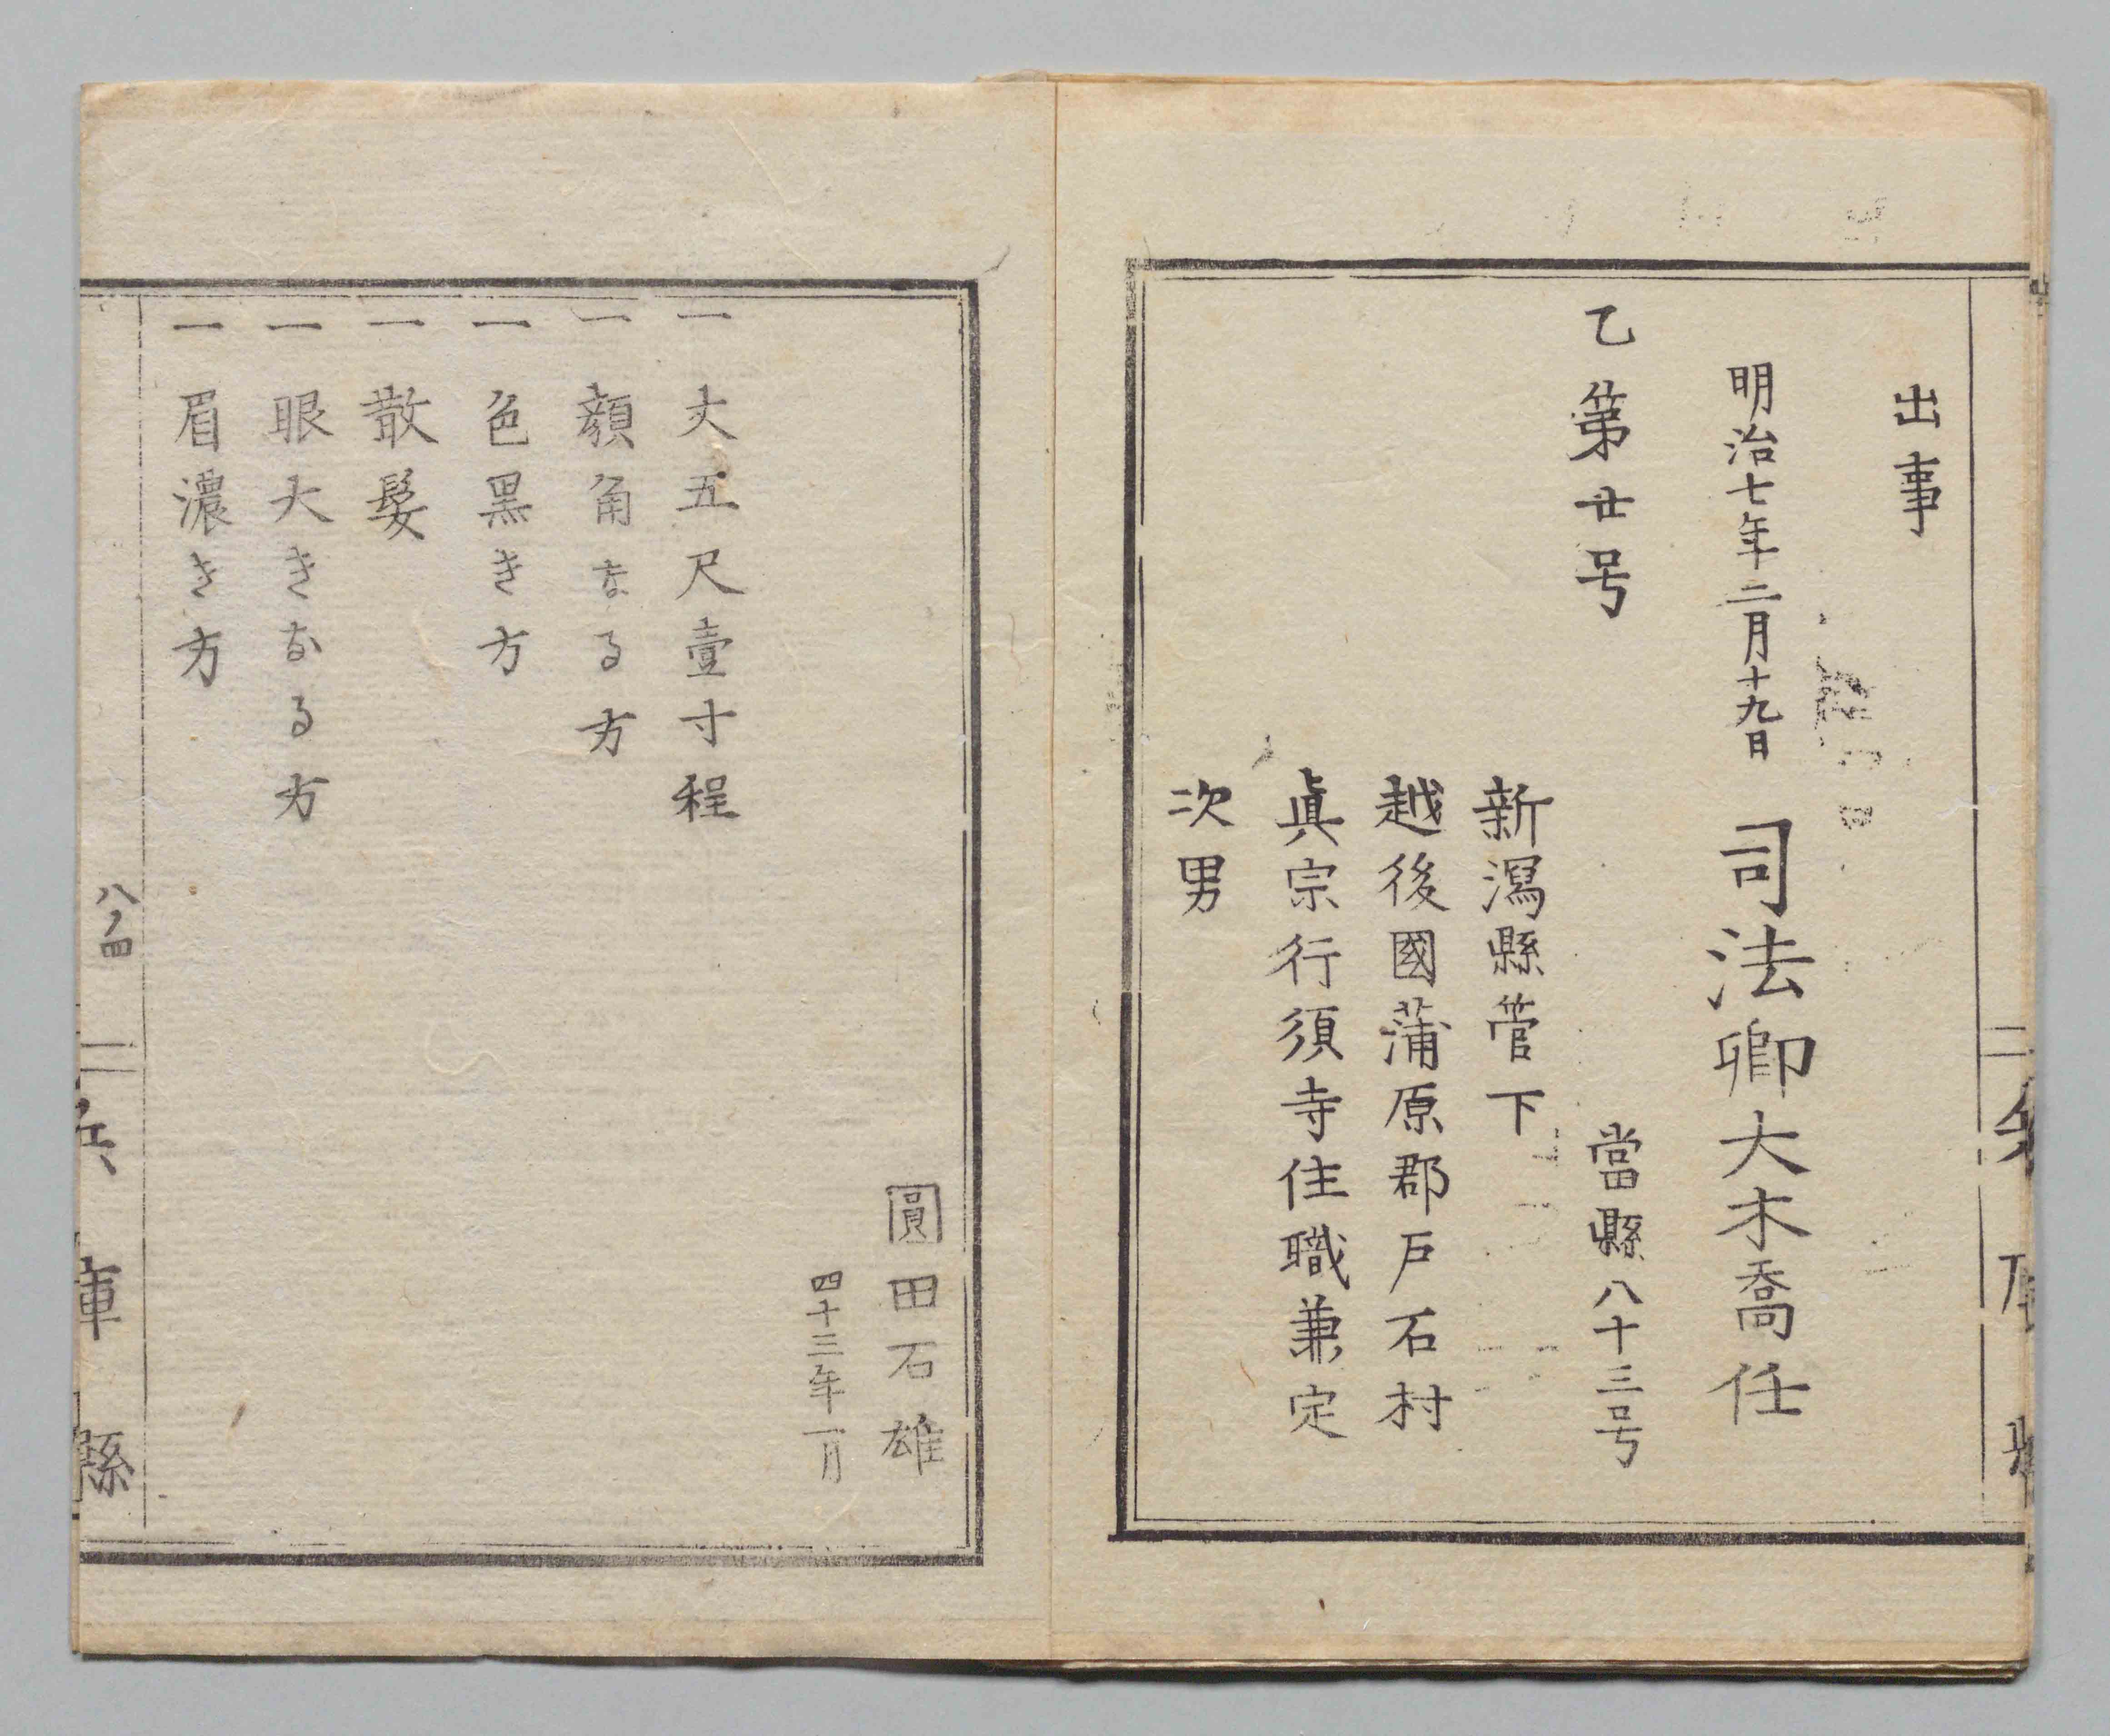 出事
明治七年二月十九日 司法卿大木喬任
乙第廿号 當縣八十三号
新潟縣管下
越後國蒲原郡戸石村
眞宗行須寺住職兼定
次男
圓田石雄
四十三年一月
一 丈五尺壹寸程
一 顔角なる方
一 色黒き方
一 散髪
一 眼大きなる方
一 眉濃き方
八ノ四
兵庫縣